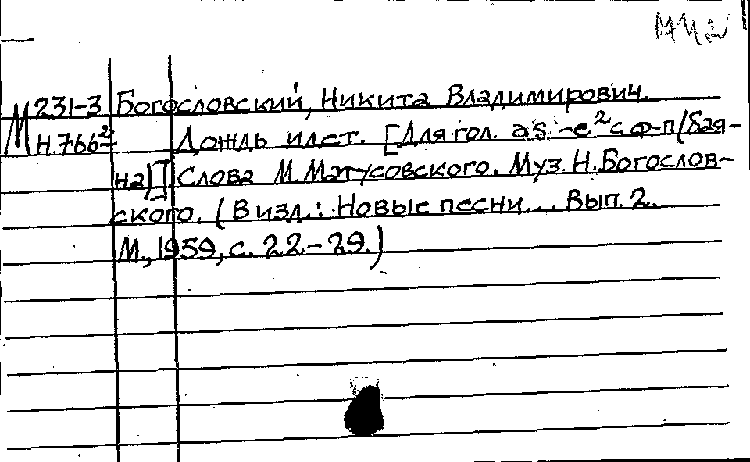 М 231-3 Богословский, Никита Владимирович.
Н766² Дождь идет. [Для гол. as-e² с ф-п (бая-
на)] Слова М. Матусовского. Муз. Н. Богослов-
ского. (В изд.: Новые песни... Вып. 2.
М., 1959, с. 22-29.)